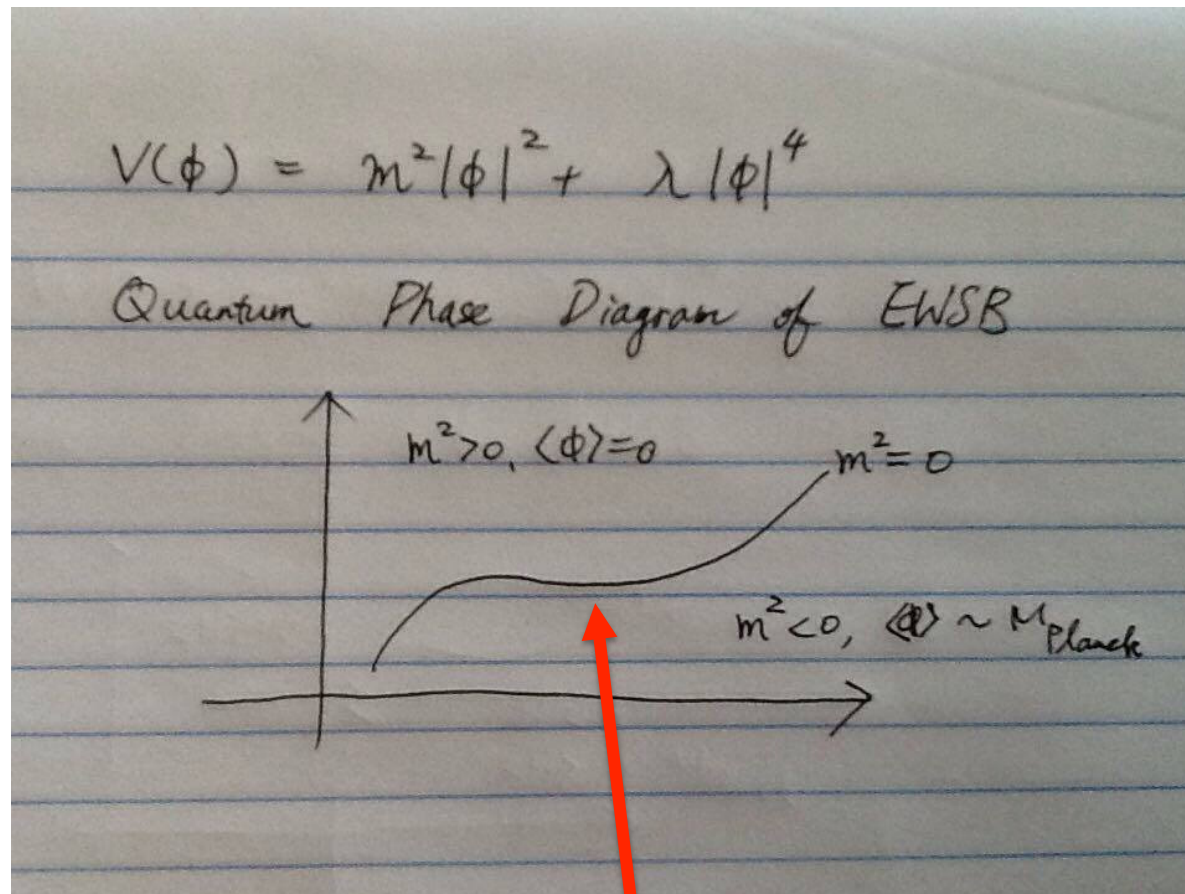 V(ϕ) = m²|ϕ|² + λ|ϕ|⁴
Quantum Phase Diagram of EWSB
m²>0, ⟨ϕ⟩=0
m²=0
m²<0, ⟨ϕ⟩ ~ M_Planck